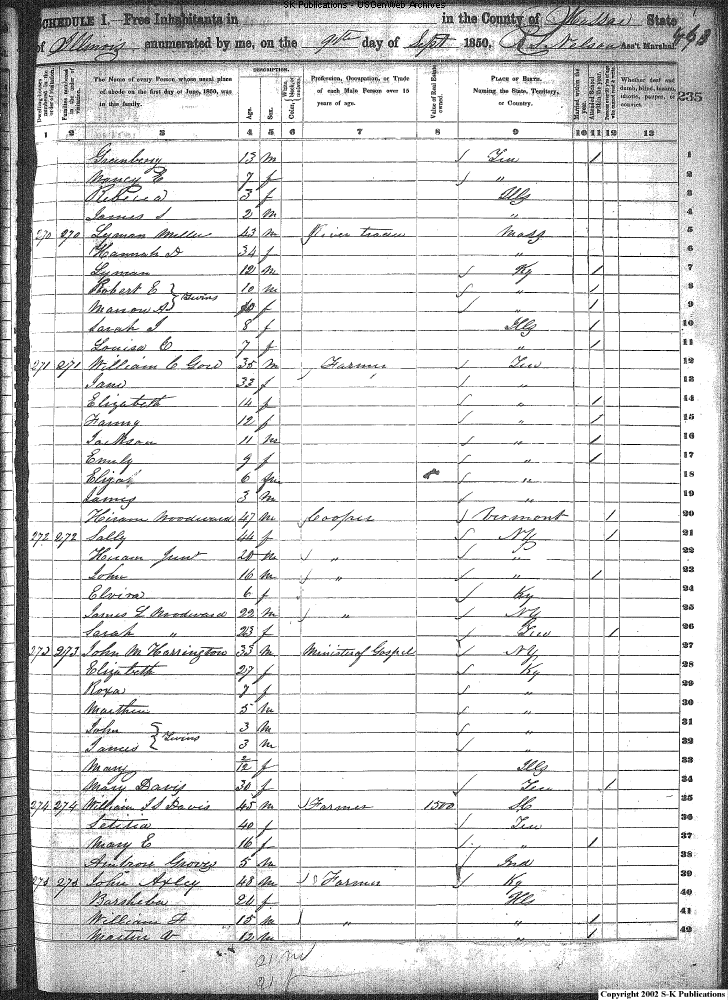 S-K Publications - USGenWeb Archives
SCHEDULE I.—Free Inhabitants in in the County of State
of Illinois enumerated by me, on the 9th day of Sept 1850. Nelson Ass't Marshal. 235
DESCRIPTION.
The Name of every Person whose usual place of abode on the first day of June, 1850, was in this family.
Age. Sex.
Profession, Occupation, or Trade of each Male Person over 15 years of age.
Value of Real Estate owned.
PLACE OF BIRTH. Naming the State, Territory, or Country.
Whether deaf and dumb, blind, insane, idiotic, pauper, or convict.
1 2 3 4 5 6 7 8 9 10 11 12 13
Greenberry 13 m Ten 1 1
Nancy E 7 f " 2
Rebecca 3 f Ills 3
James S 2 m " 4
270 270 Lyman Miller 43 m Mass 5
Hannah D 34 f " 6
Lyman 12 m Ky 1 7
Robert E } Twins 10 m " 1 8
Marion A 10 f " 1 9
Sarah J 8 f Ills 1 10
Louisa C 7 f " 1 11
271 271 William C Gore 35 m Farmer Ten 12
Jane 33 f " 13
Elizabeth 14 f " 1 14
Fanny 12 f " 1 15
Jackson 11 m " 1 16
Emily 9 f " 1 17
Elijah 6 m " 18
James 3 m " 19
Hiram Woodward 47 m Cooper Vermont 1 20
272 272 Sally 44 f NY 1 21
Hiram Jun 20 m " " 22
John 16 m " " 1 23
Elvira 6 f Ky 24
James L Woodward 22 m " NY 25
Sarah " 23 f Ten 1 26
273 273 John M Harrington 33 m Minister of Gospel NY 27
Elizabeth 27 f Ky 28
Roxa 7 f " 29
Matthew 5 m " 30
John } Twins 3 m " 31
James 3 m " 32
Mary 2/12 f Ills 33
Mary Davis 30 f Ten 1 34
274 274 William S S Davis 45 m Farmer 1500 SC 35
Letitia 40 f Ten 36
Mary E 16 f " 1 37
Ambrose Grover 5 m Ind 38
275 275 John Axley 48 m Farmer Ky 39
Barsheba 24 f Ills 40
William F 15 m " " 1 41
Martin V 12 m " 1 42
21 m
21 f
Copyright 2002 S-K Publications